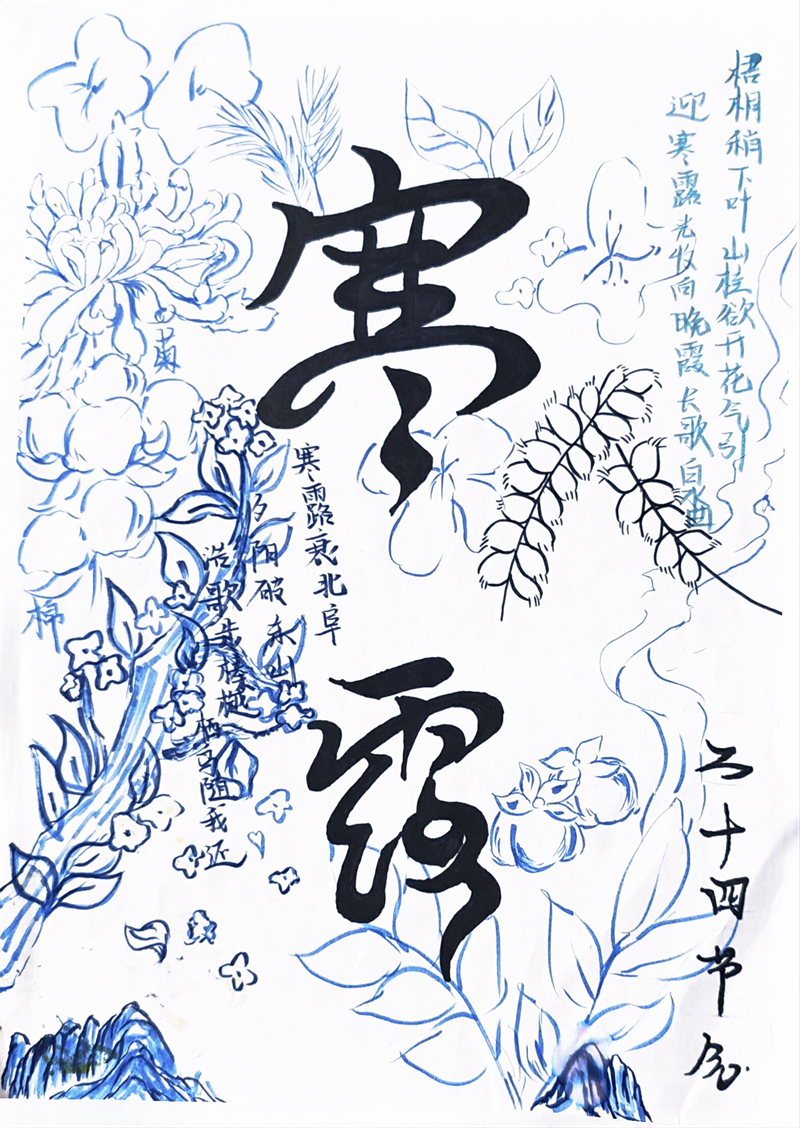 梧桐稍下叶 山桂欲开花气引
迎寒露光收向晚霞 长歌白水曲
寒露
寒露衰北阜
夕阳破东山
浩歌步榛樾 栖鸟随我还
菊
棉
二十四节气